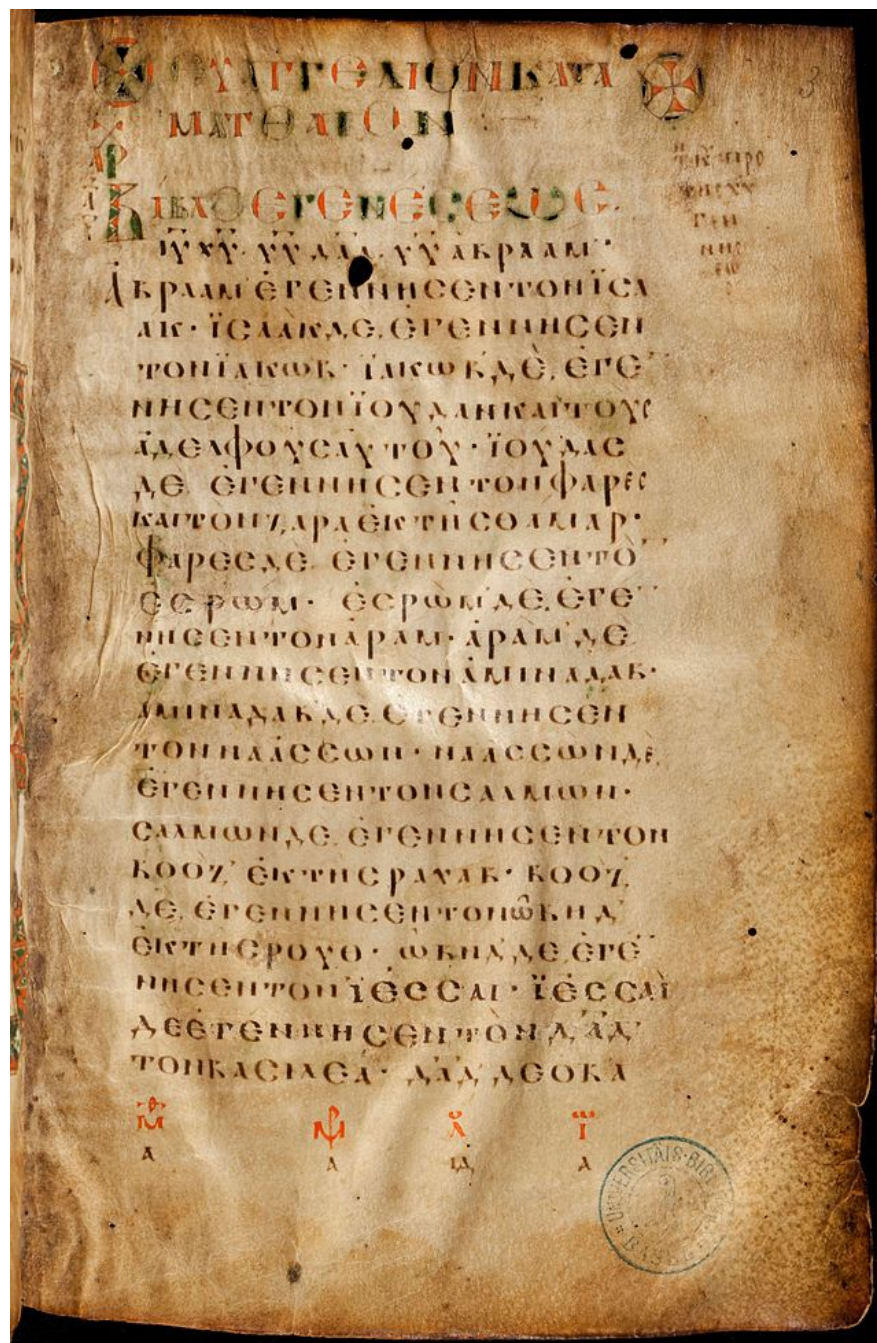 ΕΥΑΓΓΕΛΙΟΝ ΚΑΤΑ
ΜΑΤΘΑΙΟΝ
3
ΒΙΒΛΟϹ ΓΕΝΕϹΕΩϹ
ΙΥ ΧΥ· ΥΥ ΔΑΔ· ΥΥ ΑΒΡΑΑΜ·
ΑΒΡΑΑΜ ΕΓΕΝΝΗϹΕΝ ΤΟΝ ΪϹΑ
ΑΚ· ΪϹΑΑΚ ΔΕ ΕΓΕΝΝΗϹΕΝ
ΤΟΝ ΪΑΚΩΒ· ΪΑΚΩΒ ΔΕ ΕΓΕ
ΝΝΗϹΕΝ ΤΟΝ ΪΟΥΔΑΝ ΚΑΙ ΤΟΥϹ
ΑΔΕΛΦΟΥϹ ΑΥΤΟΥ· ΪΟΥΔΑϹ
ΔΕ ΕΓΕΝΝΗϹΕΝ ΤΟΝ ΦΑΡΕϹ
ΚΑΙ ΤΟΝ ΖΑΡΑ ΕΚ ΤΗϹ ΘΑΜΑΡ·
ΦΑΡΕϹ ΔΕ ΕΓΕΝΝΗϹΕΝ ΤΟ
ΕϹΡΩΜ· ΕϹΡΩΜ ΔΕ ΕΓΕ
ΝΗϹΕΝ ΤΟΝ ΑΡΑΜ· ΑΡΑΜ ΔΕ
ΕΓΕΝΝΗϹΕΝ ΤΟΝ ΑΜΙΝΑΔΑΒ·
ΑΜΙΝΑΔΑΒ ΔΕ ΕΓΕΝΝΗϹΕΝ
ΤΟΝ ΝΑΑϹϹΩΝ· ΝΑΑϹϹΩΝ ΔΕ
ΕΓΕΝΝΗϹΕΝ ΤΟΝ ϹΑΛΜΩΝ·
ϹΑΛΜΩΝ ΔΕ ΕΓΕΝΝΗϹΕΝ ΤΟΝ
ΒΟΟΖ ΕΚ ΤΗϹ ΡΑΧΑΒ· ΒΟΟΖ
ΔΕ ΕΓΕΝΝΗϹΕΝ ΤΟΝ ΩΒΗΔ
ΕΚ ΤΗϹ ΡΟΥΘ· ΩΒΗΔ ΔΕ ΕΓΕ
ΝΗϹΕΝ ΤΟΝ ΪΕϹϹΑΙ· ΪΕϹϹΑΙ
ΔΕ ΕΓΕΝΝΗϹΕΝ ΤΟΝ ΔΑΔ
ΤΟΝ ΒΑϹΙΛΕΑ· ΔΑΔ ΔΕ Ο ΒΑ
Α Α ΙΔ Α